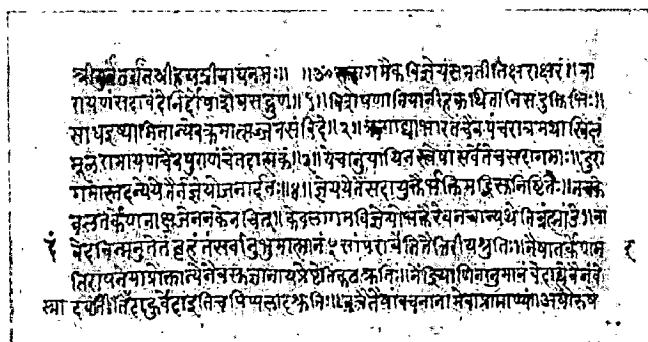 ॥ॐ॥ सदागमैकविज्ञेयंसमतीतक्षराक्षरं॥ना
रायणंसदावंदेनिर्दोषाशेषसद्गुणं॥१॥विशेषणानियानीहकथितानिसदुक्तिभिः॥
साधइष्यामितान्येवक्रमात्सज्जनसंविदे॥२॥ऋगाद्याभारतंचैवपंचरात्रमथाखिलं
मूलरामायणंचैवपुराणंचैतदात्मकं॥३॥येचानुयायिनस्त्वेषांसर्वेतेचसदागमाः॥दुरा
गमास्तदन्येयेतैर्नज्ञेयोजनार्दनः॥४॥ज्ञेयएतैःसदायुक्तैर्भक्तिमद्भिः
केवलागमविज्ञेयोभक्तैरेवनचान्यथेतिब्रह्मांडे॥ना
वेदविन्मनुतेतंबृहंतंसर्वानुभुमात्मानं सांपरायेतितैत्तिरीयश्रुतिः॥नैषातर्केणम
तिरापनेयाप्रोक्तान्येनैवसुज्ञानायप्रेष्ठेतिकठश्रुतिः॥नेंद्रियाणिनानुमानंवेदाह्येवैनंवे
स्मादाहुर्वेदाइतिचपिप्पलादश्रुतिः॥नचैतेषांवचनानामेवाप्रामाण्यं॥अपौरुषे